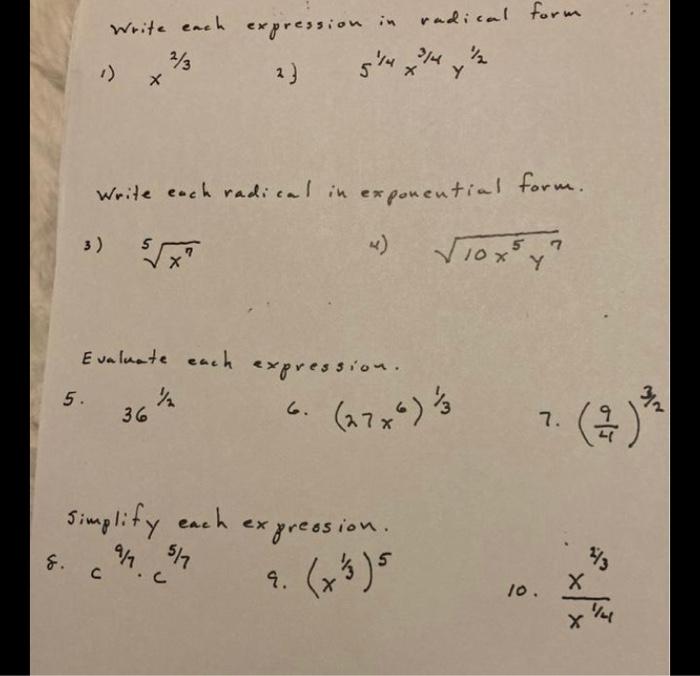 Write each expression in radical form
1) x^{2/3} 2} 5^{1/4} x^{3/4} y^{1/2}
Write each radical in exponential form.
3) \sqrt[5]{x^7} 4) \sqrt{10x^5y^7}
Evaluate each expression.
5. 36^{1/2} 6. (27x^6)^{1/3} 7. (9/4)^{3/2}
Simplify each expression.
8. c^{9/7} · c^{5/7} 9. (x^{1/3})^5 10. \frac{x^{2/3}}{x^{1/4}}